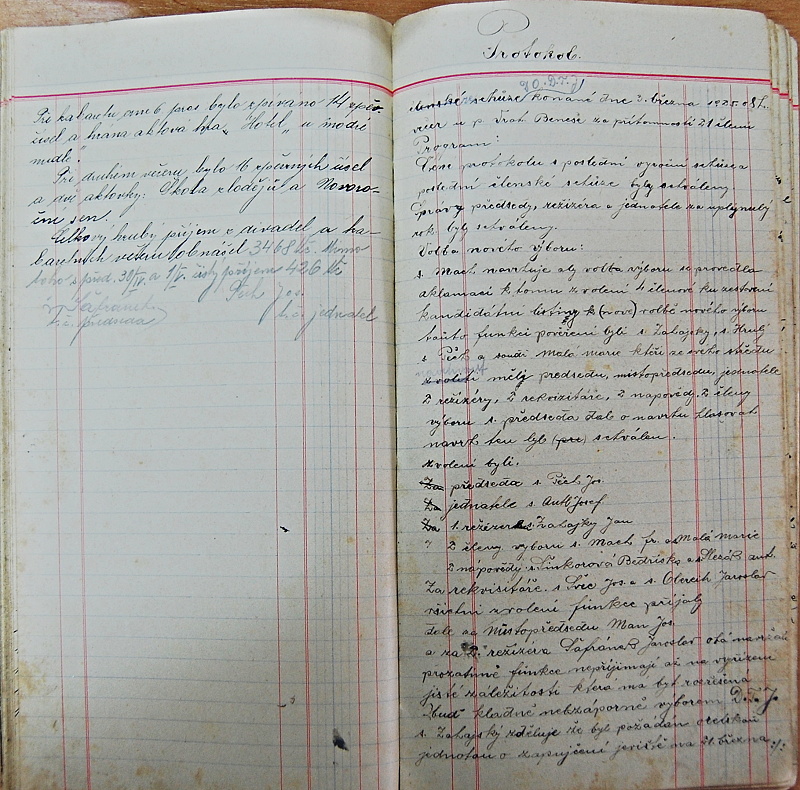 Při kabaretu aneb pros bylo zpíváno 14 zpěv.
čísel a hrana aktova hra „Hotel" u modré
mudle".
Při druhém večeru bylo 16 zpěvných čísel
a dvě aktovky: Škola zlodějů a Novoro-
ční sen.
Celkový hrubý příjem z divadel a ka-
baretních večerů obnášel 3468 Kč. Mimo
toho s před. 30/IV. a 1/V. čistý příjem 426 Kč
Šafránek
t.č. předseda
Pech Jos.
t.č. jednatel
Protokol.
JO. D.T.J.
členské schůze konané dne 3. března 1925. o 8 h.
večer u p. Vrat. Beneše za přítomnosti 21 členů
Program:
Čtení protokolu s poslední vyroční schůze a
poslední členské schůze byly schváleny
Správy předsedy, režizéra a jednatele za uplynulý
rok byly schváleny.
Volba nového výboru:
s. Mach navrhuje aby volba výboru se provedla
aklamací k tomu zvoleni 4 členové ku sestavení
kandidátní listiny k (nové) volbě nového výboru
touto funkci pověřeni byli s. Zahajsky, s. Hrulj
s. Pěch a soudr. Malá Marie kteří ze svého středu
navrhnout
zvoliti měly předsedu, místopředsedu, jednatele
2 režizéry, 2 rekvizitáře, 2 napovědy, 2 členy
výboru s. předseda dal o navrhu hlasovat
navrh ten byl (pre) schválen.
zvoleni byli.
Za předseda s. Pěch Jos.
Za jednatele s. Antl Josef
Za 1. režizéra s. Zahajky Jan
2 členy vyboru s. Mach fr. a s. Malá Marie
2 nápovědy s. Šinkorová Bedřiska a s. ant.
Za rekvisitáře. s. Švec Jos. a s. Jaroslav
všichni zvolení funkce přijaly
dále za Mistopředsedu Man Jos.
a za 2. režizéra Šafránek Jaroslav oba navržení
prozatimě funkce nepřijimají až na vyřízení
jisté záležitosti která ma byt rozřešena
buď kladně neb záporně výborem D.T.J.
s. Zahajský zděluje že byl požádán oreskou
jednotou o zapujčení jeviště na 21. března